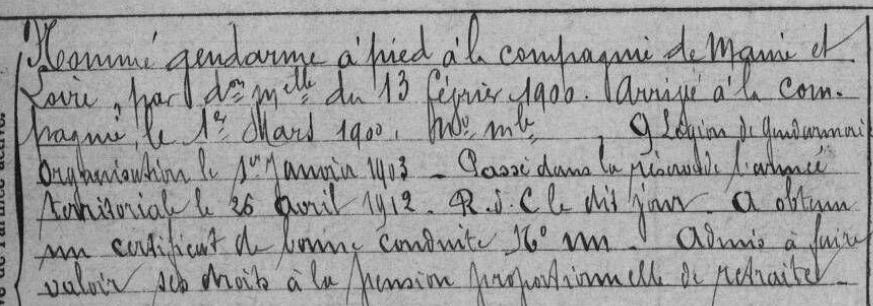 Nommé gendarme à pied à la compagnie de Maine et
Loire, par don mlle du 13 février 1900. Arrivé à la com-
pagnie, le 1er Mars 1900. No mle 9 Légion de gendarmerie
Organisation le 1er Janvier 1903 - Passé dans la réserve de l'armée
territoriale le 26 avril 1912. R.d.C le dit jour. A obtenu
un certificat de bonne conduite. Admis à faire
valoir ses droits à la pension proportionnelle de retraite -
de l'armée active.